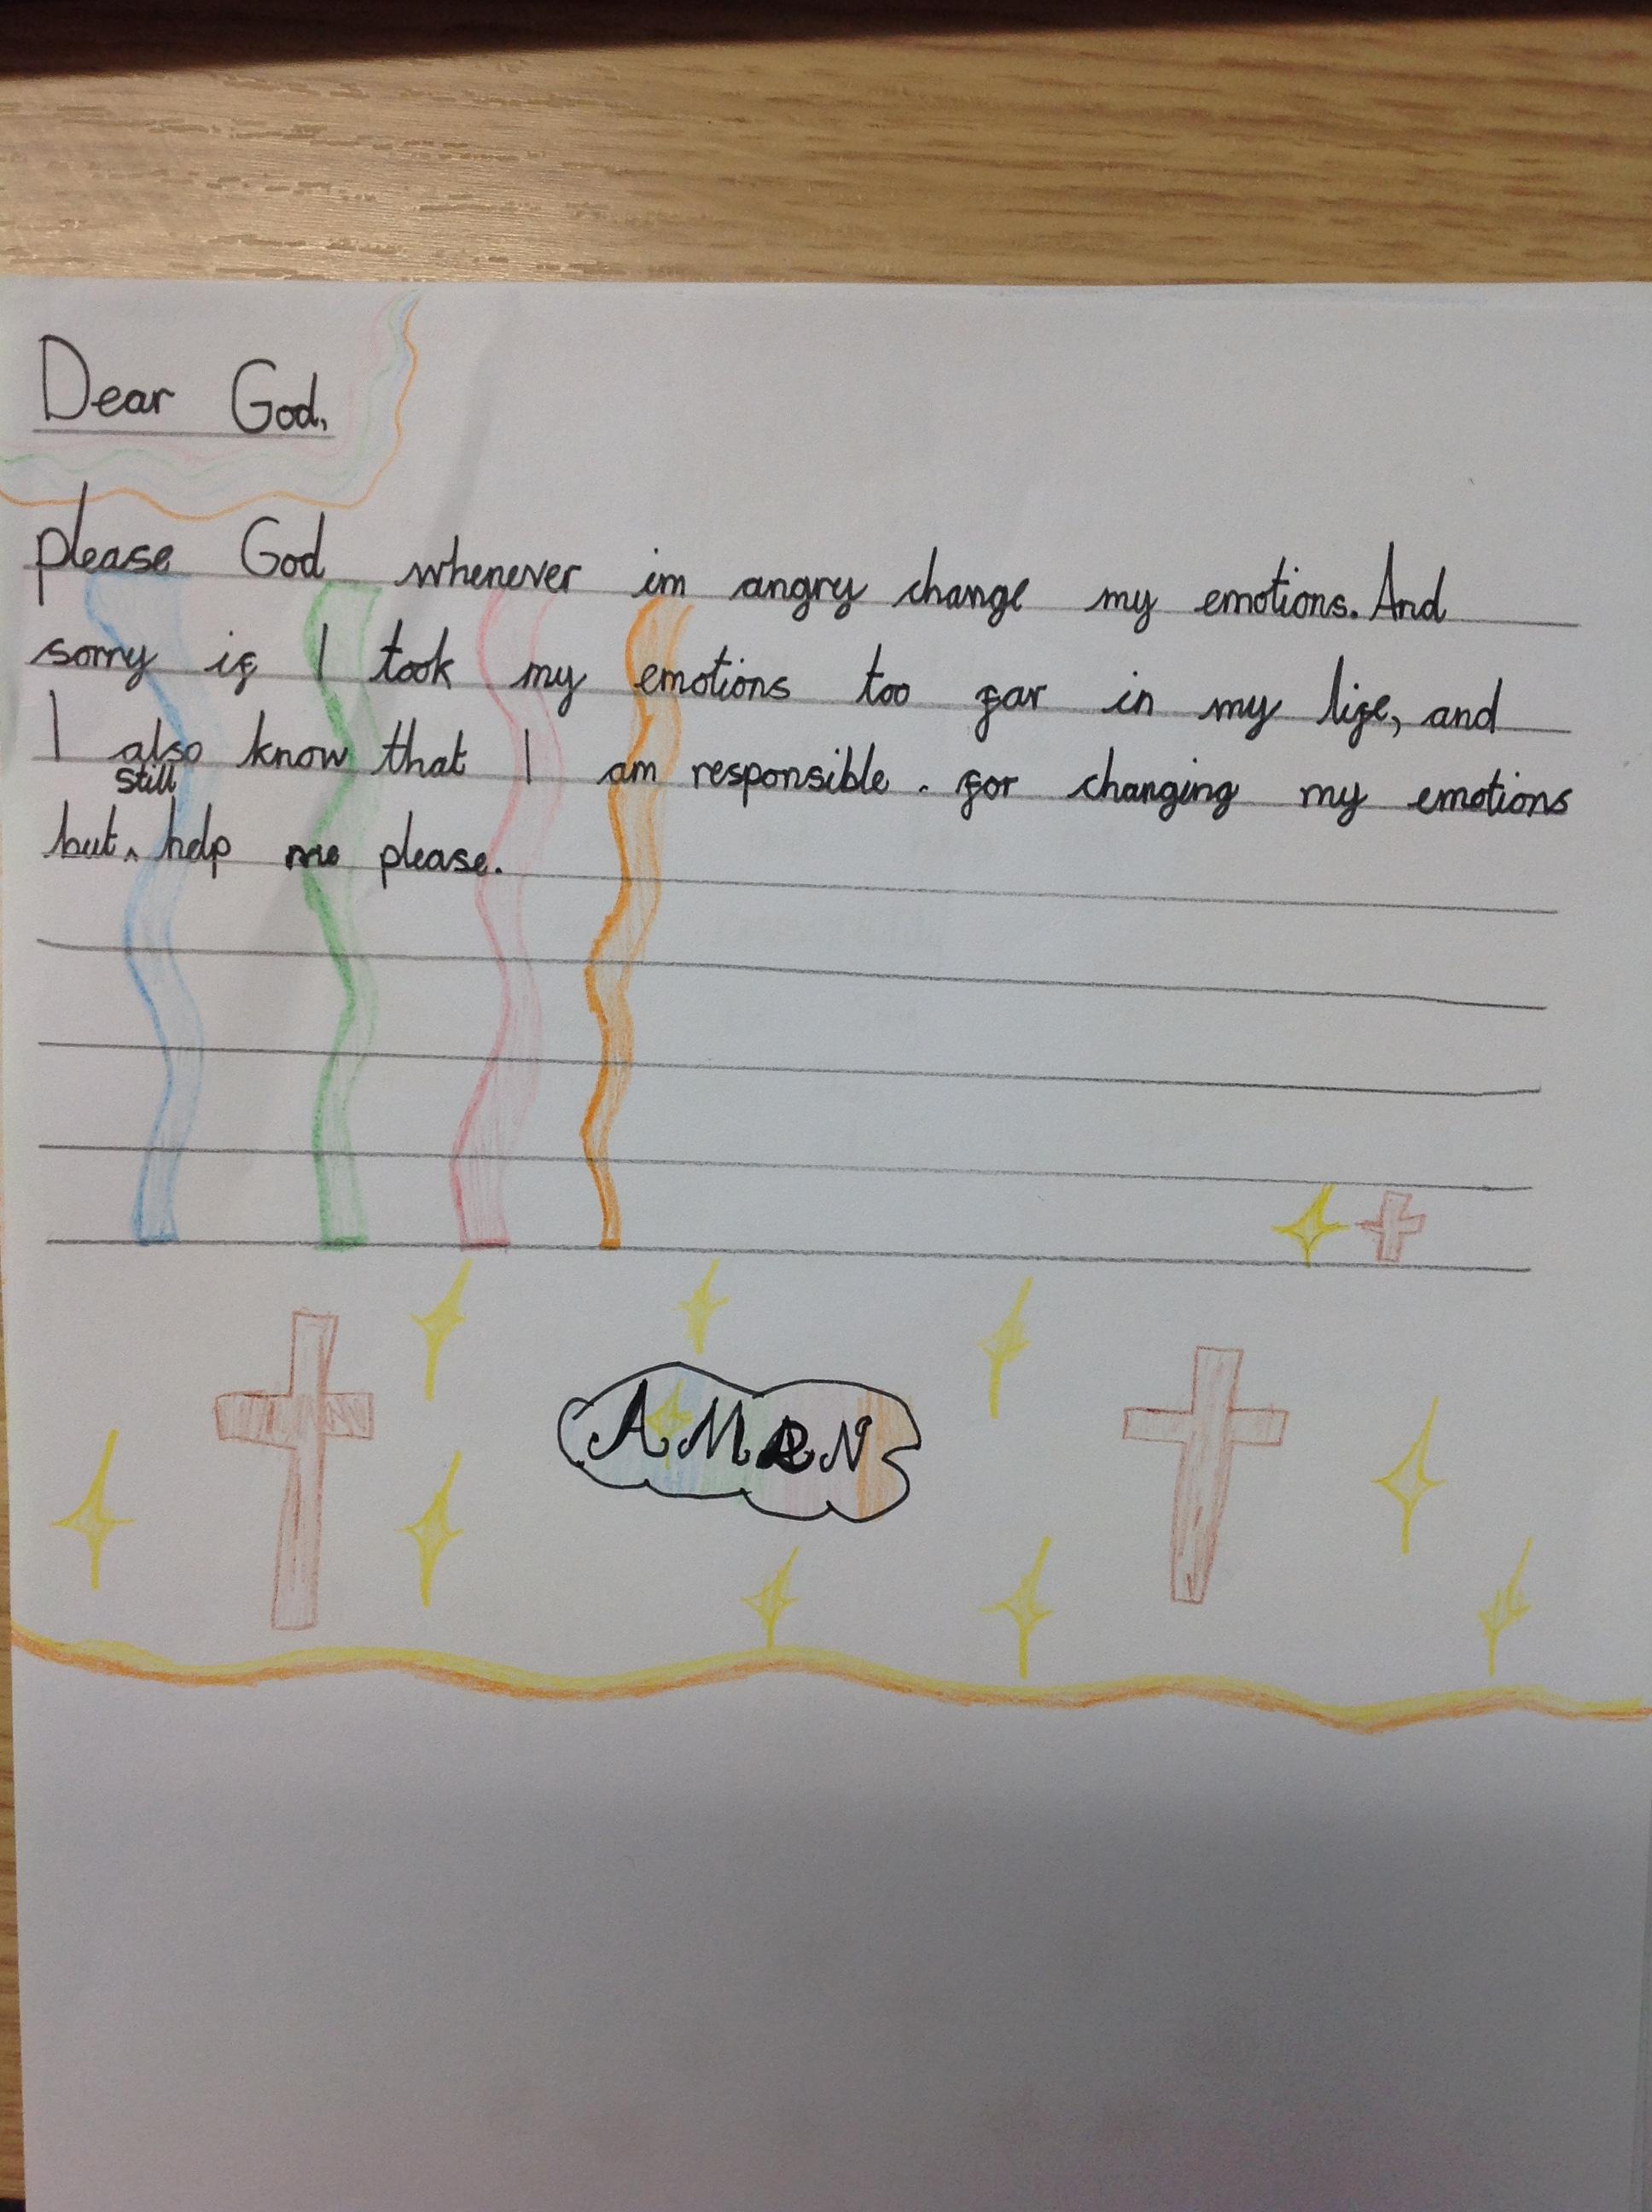 Dear God,
please God whenever im angry change my emotions. And
sorry if I took my emotions too far in my life, and
I also know that I am responsible. for changing my emotions
still
but ^ help me please.
AMEN